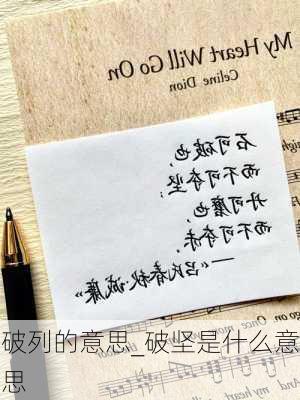 My Heart Will Go On
Celine Dion
石可破也,
而不可夺坚;
丹可磨也,
而不可夺赤。
——《吕氏春秋·诚廉》
破列的意思_破坚是什么意
思